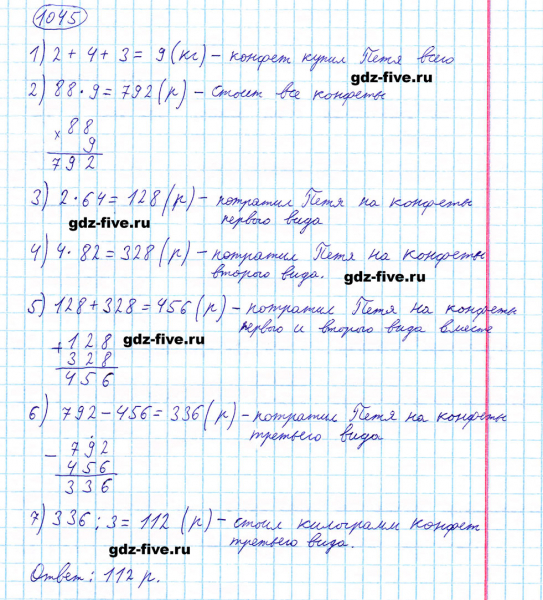 1045
1) 2 + 4 + 3 = 9 (кг) – конфет купил Петя всего
gdz-five.ru
2) 88 · 9 = 792 (р) – стоят все конфеты
× 88
9
792
3) 2 · 64 = 128 (р) – потратил Петя на конфеты
первого вида
gdz-five.ru
4) 4 · 82 = 328 (р) – потратил Петя на конфеты
второго вида.
gdz-five.ru
5) 128 + 328 = 456 (р) – потратил Петя на конфеты
первого и второго вида вместе
+ 128
328
456
gdz-five.ru
6) 792 – 456 = 336 (р) – потратил Петя на конфеты
третьего вида
– 792
456
336
7) 336 : 3 = 112 (р) – стоил килограмм конфет
третьего вида.
gdz-five.ru
Ответ: 112 р.